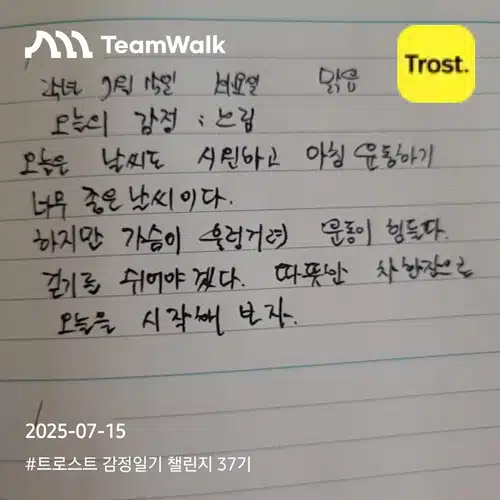 TeamWalk
Trost.
7월 15일 화요일 맑음
오늘의 감정 : 느림
오늘은 날씨도 시원하고 아침 운동하기
너무 좋은 날씨이다.
하지만 가슴이 울렁거려 운동이 힘들다.
걷기를 쉬어야겠다. 따뜻한 차 한잔으로
오늘을 시작해 보자.
2025-07-15
#트로스트 감정일기 챌린지 37기